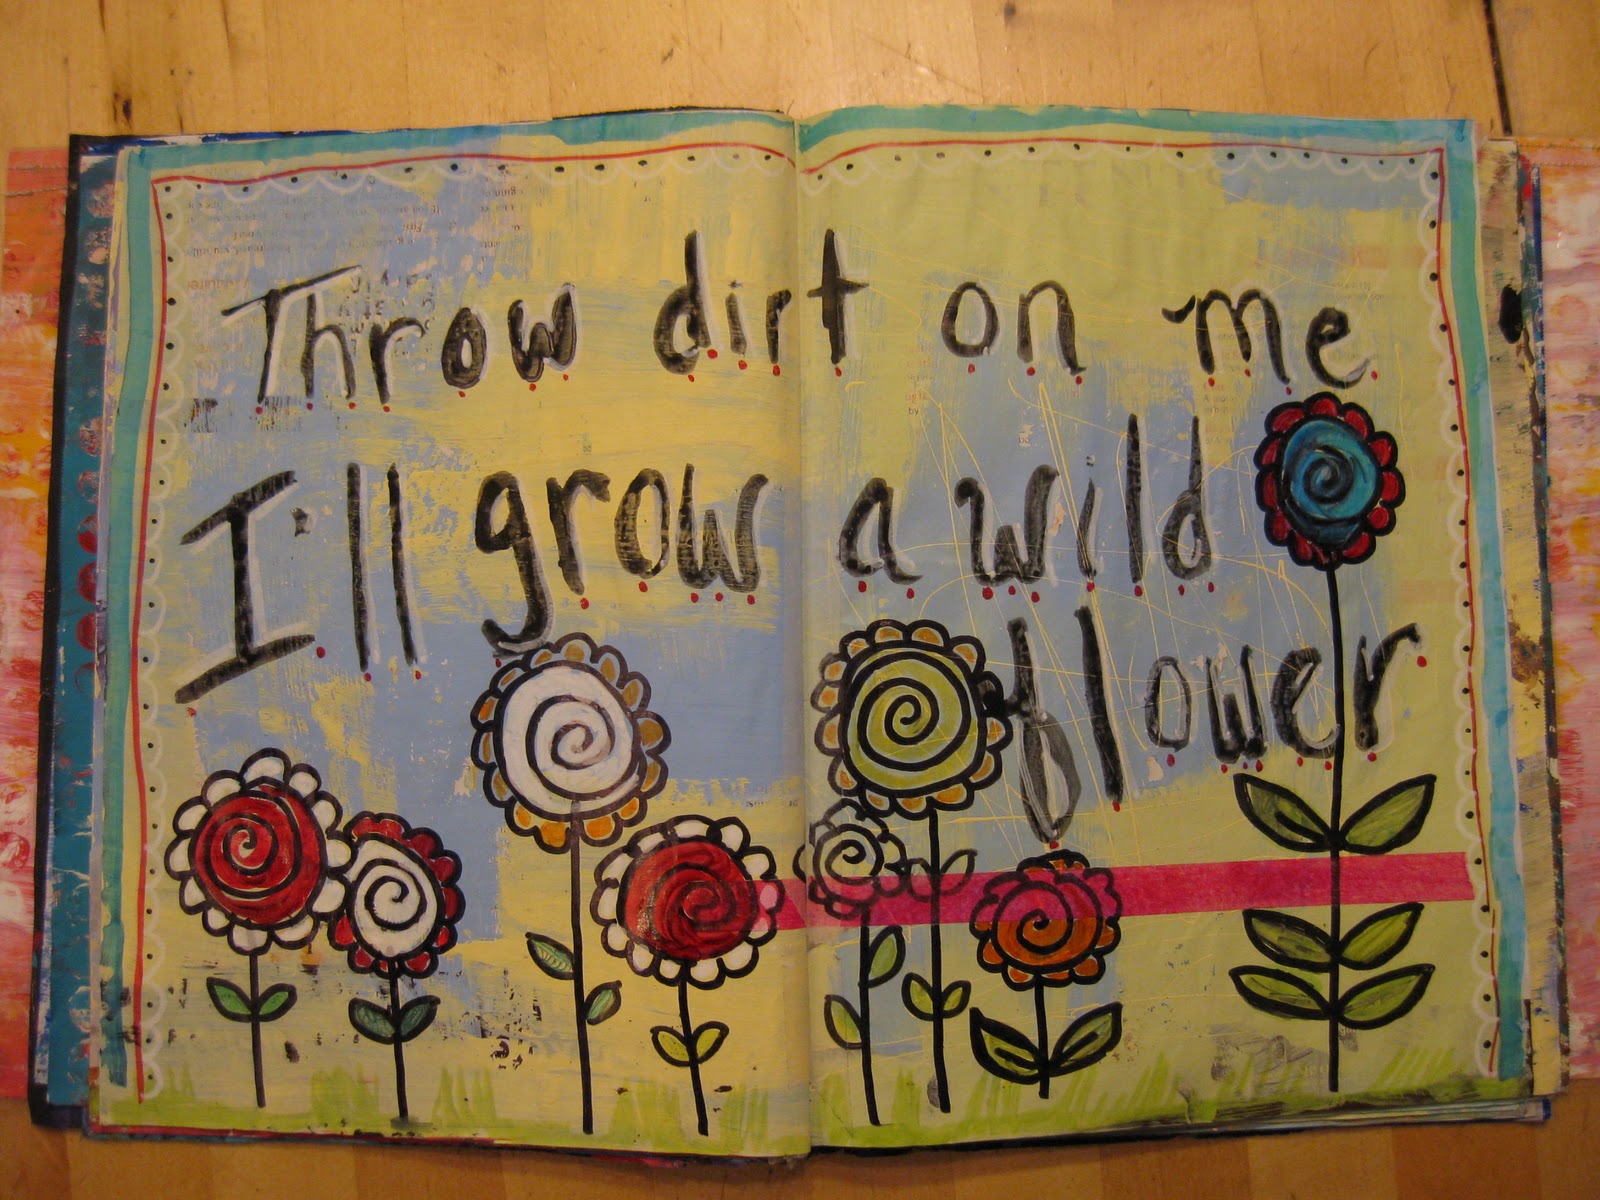 Throw dirt on me
I'll grow a wild
flower